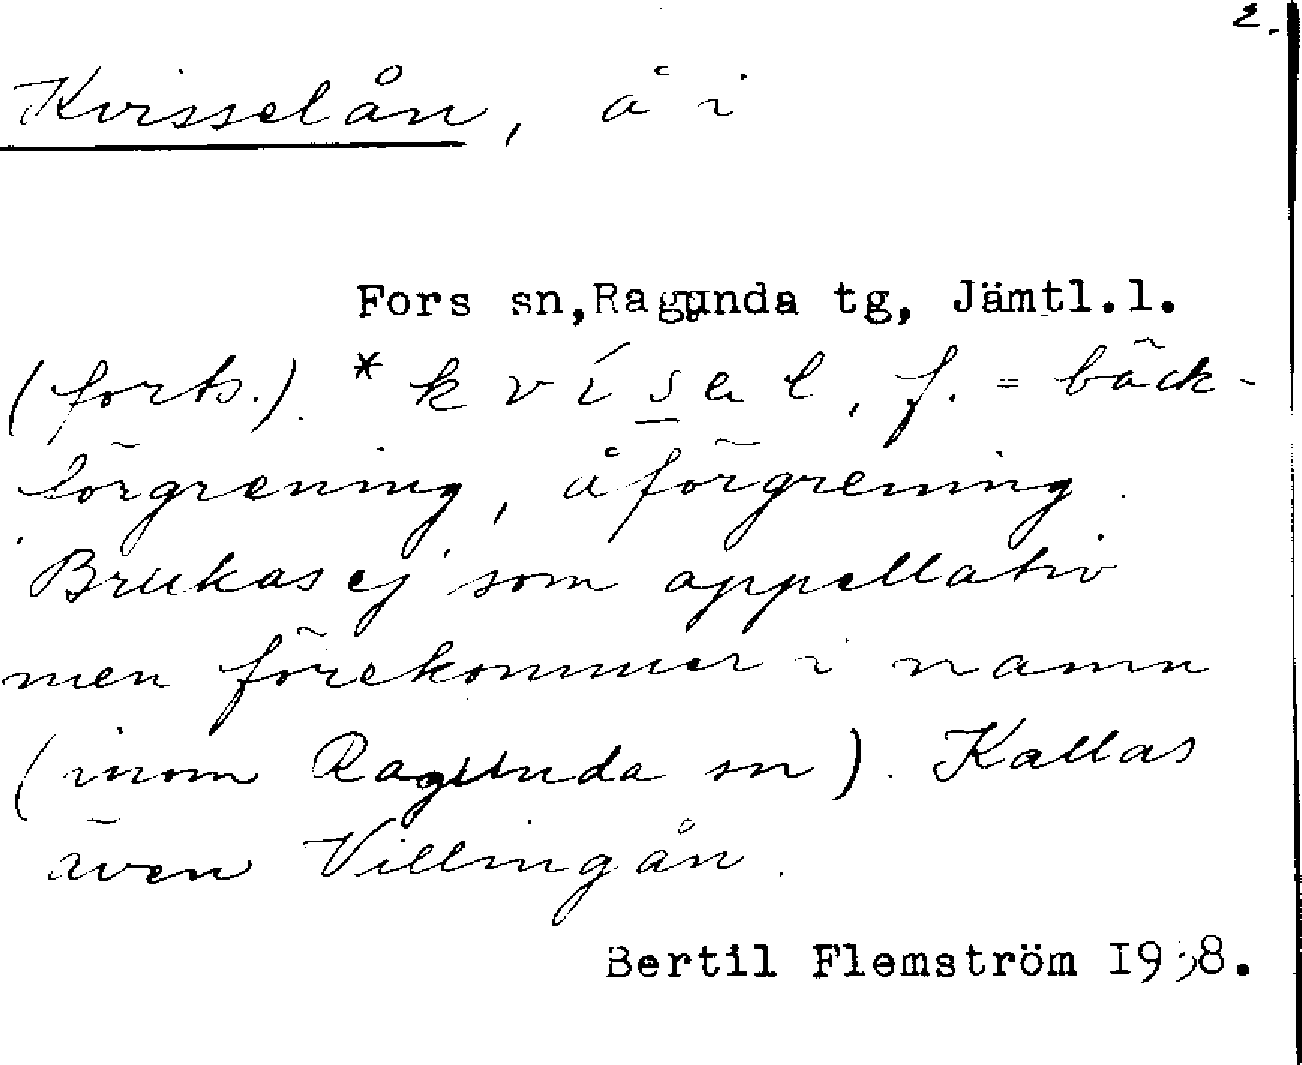 2.
Kvisselån, å i
Fors sn, Ragunda tg, Jämtl.l.
(forts.). * k v í s e l, f. = bäck-
förgrening, åförgrening.
Brukas ej som appellativ
men förekommer i namn
(inom Ragunda sn). Kallas
även Villingån.
Bertil Flemström